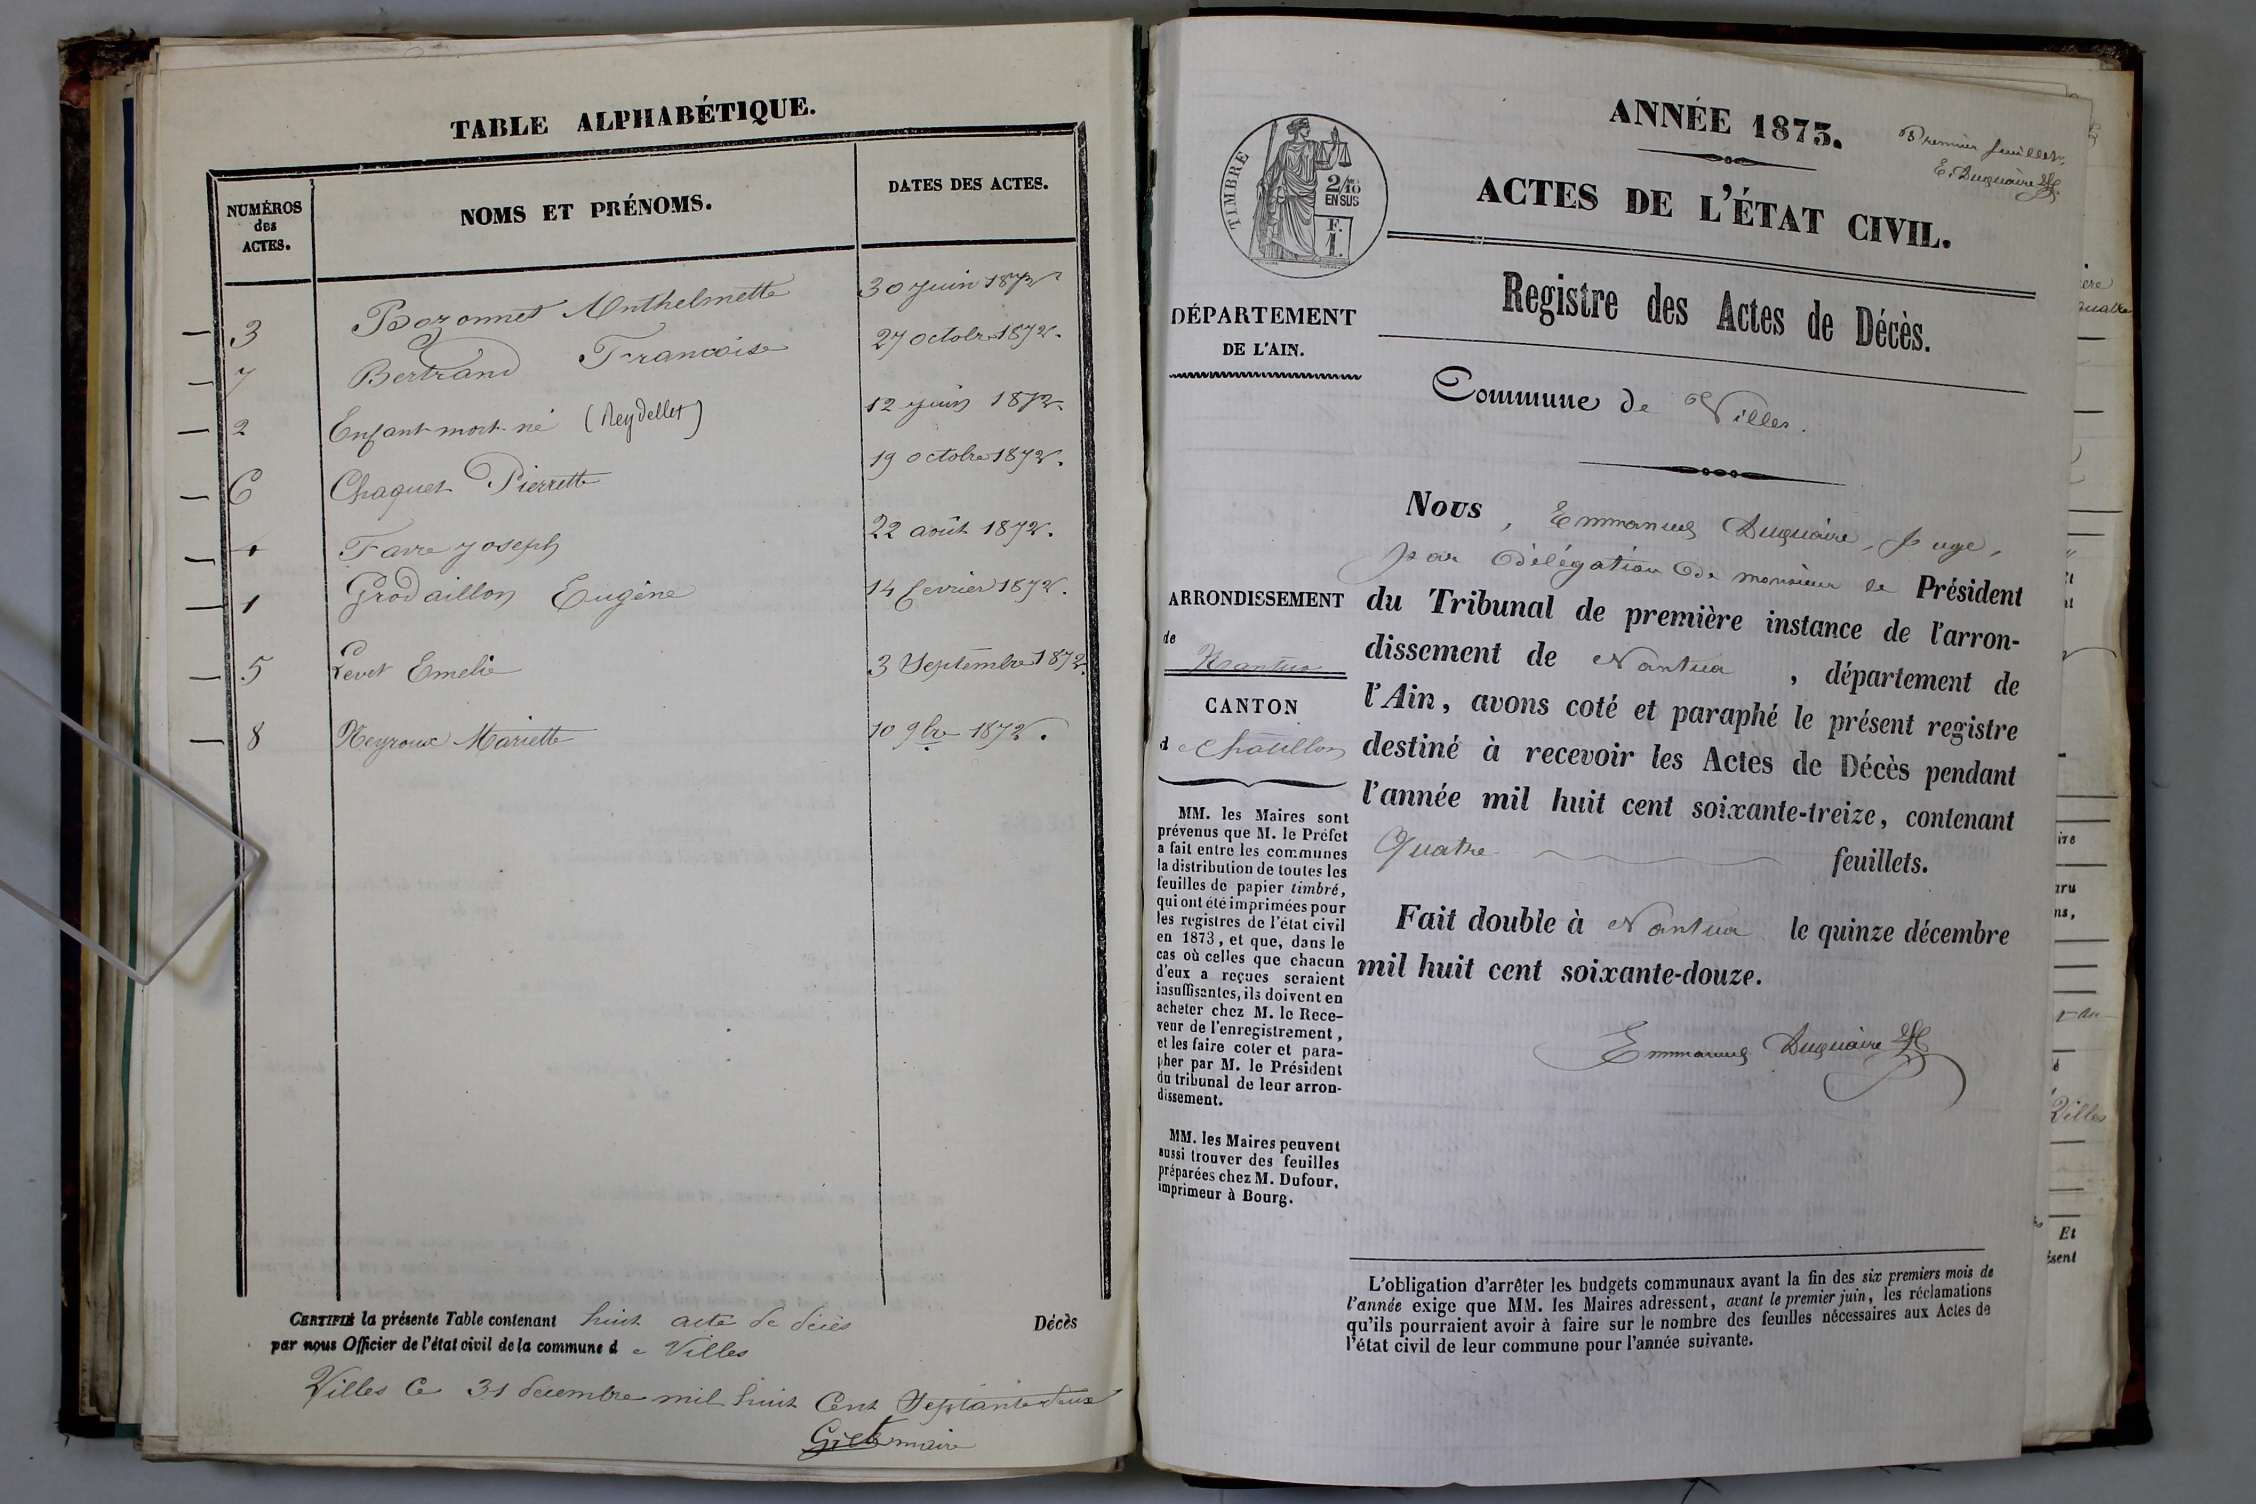 TABLE ALPHABÉTIQUE.
NUMÉROS
des
ACTES.
NOMS ET PRÉNOMS.
DATES DES ACTES.
3 Bozonnet Anthelmette 30 juin 1872
7 Bertrand Francoise 27 octobre 1872.
2 Enfant mort né (Reydellet) 12 juin 1872.
6 Chaquet Pierrette 19 octobre 1872.
4 Favre Joseph 22 août 1872.
1 Grodaillon Eugène 14 fevrier 1872.
5 Levet Emelie 3 Septembre 1872.
8 Neyroux Mariette 10 9bre 1872.
CERTIFIÉ la présente Table contenant huit acte de décès Décès
par nous Officier de l'état civil de la commune d e Villes
Villes Ce 31 décembre mil huit Cent Septante deux
maire
ANNÉE 1873.
Premier feuillet.
E. Duquaire
ACTES DE L'ÉTAT CIVIL.
TIMBRE
2/10
EN SUS
F.
1.
Registre des Actes de Décès.
DÉPARTEMENT
DE L'AIN.
Commune de Villes.
Nous, Emmanuel Duquaire, Juge,
par délégation de monsieur le Président
du Tribunal de première instance de l'arron-
dissement de Nantua, département de
l'Ain, avons coté et paraphé le présent registre
destiné à recevoir les Actes de Décès pendant
l'année mil huit cent soixante-treize, contenant
Quatre feuillets.
Fait double à Nantua le quinze décembre
mil huit cent soixante-douze.
Emmanuel Duquaire
ARRONDISSEMENT
de
Nantua
CANTON
d e Chatillon
MM. les Maires sont
prévenus que M. le Préfet
a fait entre les communes
la distribution de toutes les
feuilles de papier timbré,
qui ont été imprimées pour
les registres de l'état civil
en 1873, et que, dans le
cas où celles que chacun
d'eux a reçues seraient
insuffisantes, ils doivent en
acheter chez M. le Rece-
veur de l'enregistrement,
et les faire coter et para-
pher par M. le Président
du tribunal de leur arron-
dissement.
MM. les Maires peuvent
aussi trouver des feuilles
préparées chez M. Dufour,
imprimeur à Bourg.
L'obligation d'arrêter les budgets communaux avant la fin des six premiers mois de
l'année exige que MM. les Maires adressent, avant le premier juin, les réclamations
qu'ils pourraient avoir à faire sur le nombre des feuilles nécessaires aux Actes de
l'état civil de leur commune pour l'année suivante.
Villes
Et